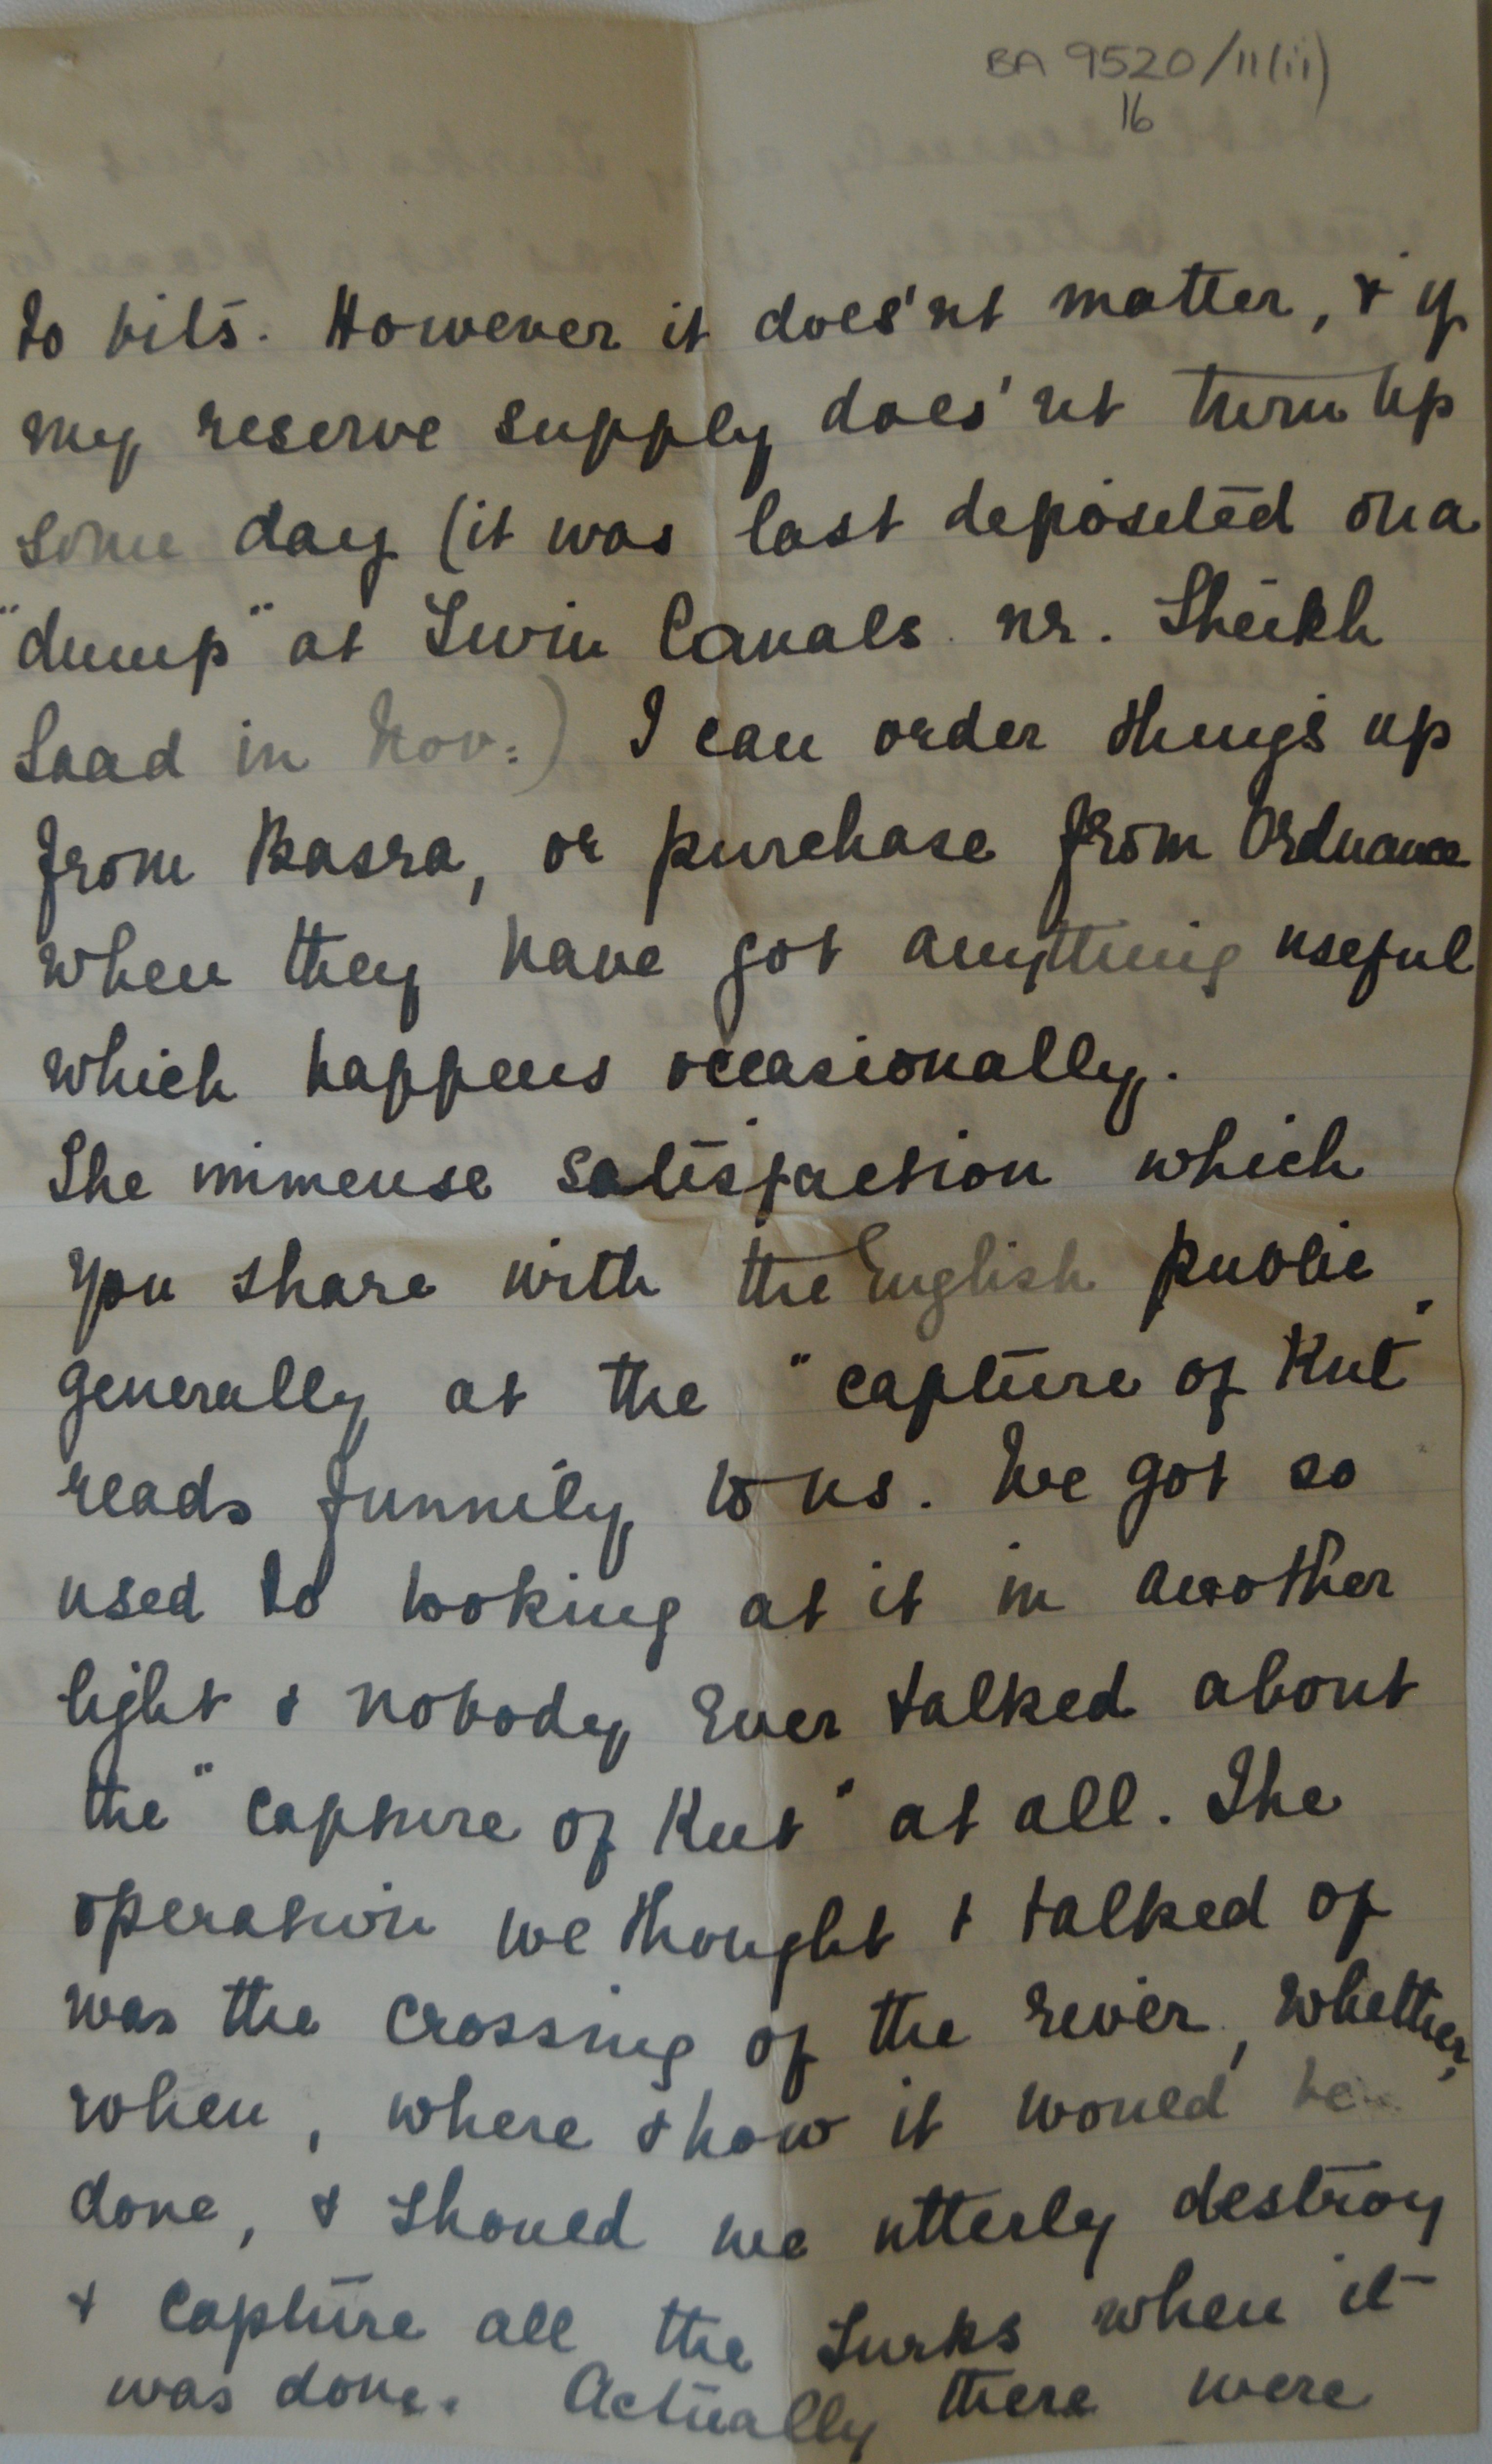 BA 9520/11(iii)
16
to bits. However it does'nt matter, & if
my reserve supply does'nt turn up
some day (it was last deposited on a
"dump" at Twin Canals nr. Sheikh
Saad in Nov:) I can order things up
from Basra, or purchase from Ordnance
when they have got anything useful
which happens occasionally.
The immense satisfaction which
you share with the English public
generally at the "capture of Kut"
reads funnily to us. We got so
used to looking at it in another
light & nobody ever talked about
the "capture of Kut" at all. The
operation we thought & talked of
was the crossing of the river, whether,
when, where & how it would be
done, & should we utterly destroy
& capture all the Turks when it
was done. Actually there were